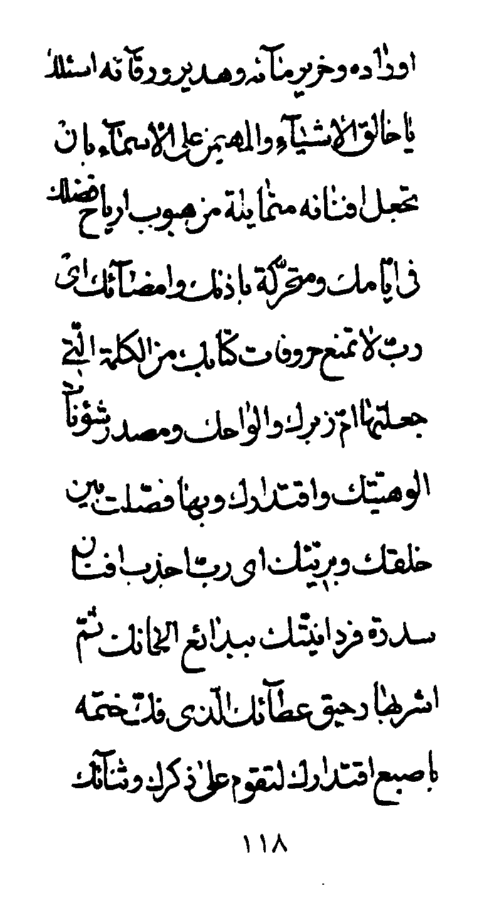 اوراده وخرير مآئه وهدير ورقآئه اسئلك
يا خالق الاشيآء والمهيمن على الاسمآء بان
تجعل افنانه متمايلة من هبوب ارياح فضلك
فى ايّامك ومتحرّكة باذنك وامضآئك اى
ربّ لا تمنع حروفات كتابك من الكلمة الّتى
جعلتها امّ زبرك والواحك ومصدر شؤنات
الوهيّتك واقتدارك وبها فصّلت بين
خلقك وبريّتك اى ربّ اجذب افنان
سدرة فردانيّتك ببدائع الحانك ثمّ
اشربها رحيق عطآئك الّذى فكّ ختمه
باصبع اقتدارك لتقوم على ذكرك وثنآئك
١١٨